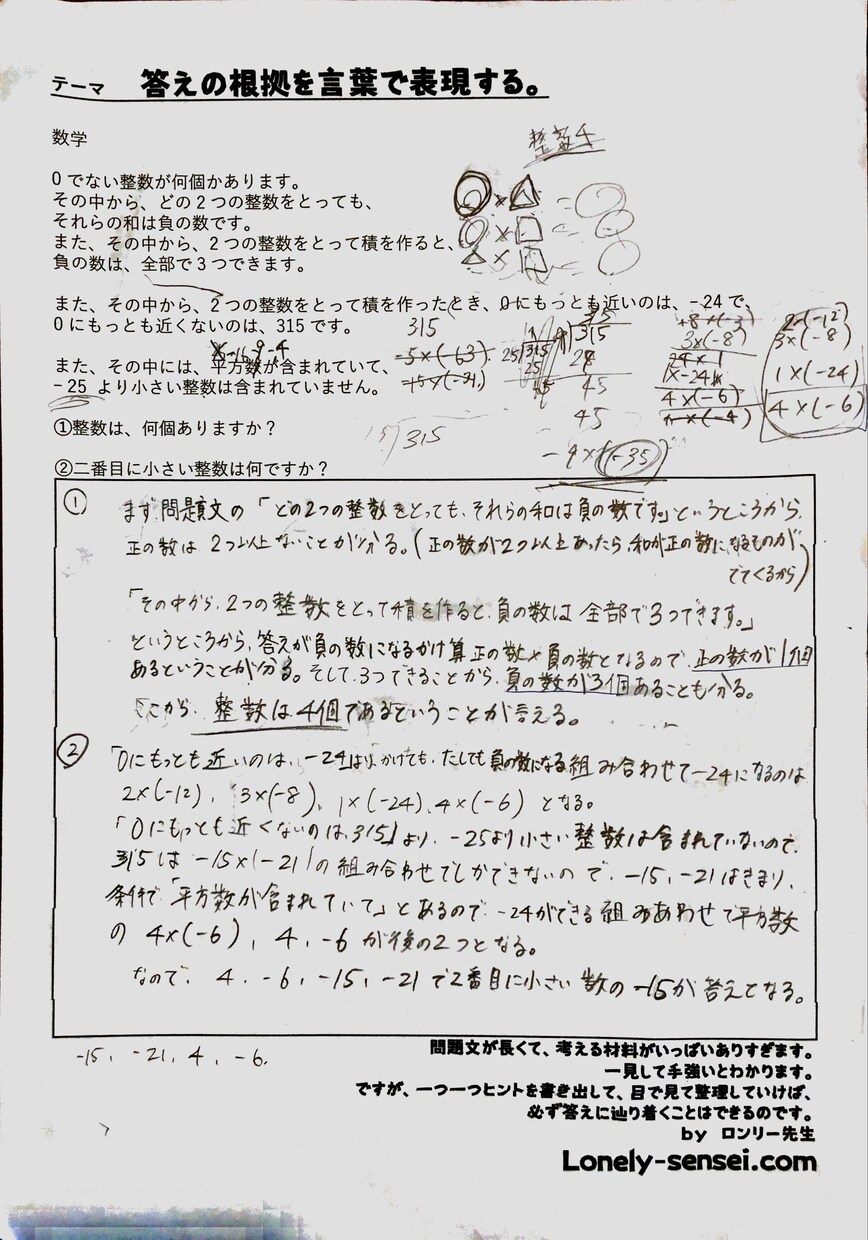 テーマ 答えの根拠を言葉で表現する。
数学
整数4
0でない整数が何個かあります。
その中から、どの2つの整数をとっても、
それらの和は負の数です。
また、その中から、2つの整数をとって積を作ると、
負の数は、全部で3つできます。
また、その中から、2つの整数をとって積を作ったとき、0にもっとも近いのは、-24で、
0にもっとも近くないのは、315です。
315
また、その中には、平方数が含まれていて、
-25 より小さい整数は含まれていません。
-5×(-63)
-15×(-21)
25 315
25
9 35
315
45
45
-9×(-35)
+8×(-3)
3×(-8)
24×1
1×-24
4×(-6)
2×(-12)
3×(-8)
1×(-24)
4×(-6)
①整数は、何個ありますか？
15)315
②二番目に小さい整数は何ですか？
① まず問題文の「どの2つの整数をとっても、それらの和は負の数です。」というところから、
正の数は2つ以上ないことが分る。(正の数が2つ以上あったら、和が正の数になるものが
でてくるから)
「その中から、2つの整数をとって積を作ると、負の数は全部で3つできます。」
というところから、答えが負の数になるかけ算正の数×負の数となるので、正の数が1個
あるということが分る。そして、3つできることから、負の数が3個あることも分る。
ここから、整数は4個であるということが言える。
② 「0にもっとも近いのは、-24」より、かけても、たしても負の数になる組み合わせで-24になるのは
2×(-12)、3×(-8)、1×(-24)、4×(-6)となる。
「0にもっとも近くないのは、315」より、-25より小さい整数は含まれていないので、
315は -15×(-21)の組み合わせでしかできないので、-15、-21はきまり、
条件で「平方数が含まれていて」とあるので、-24ができる組みあわせで平方数
の 4×(-6)、4、-6が後の2つとなる。
なので、4、-6、-15、-21で2番目に小さい数の-15が答えとなる。
-15、-21、4、-6.
問題文が長くて、考える材料がいっぱいありすぎます。
一見して手強いとわかります。
ですが、一つ一つヒントを書き出して、目で見て整理していけば、
必ず答えに辿り着くことはできるのです。
by ロンリー先生
Lonely-sensei.com